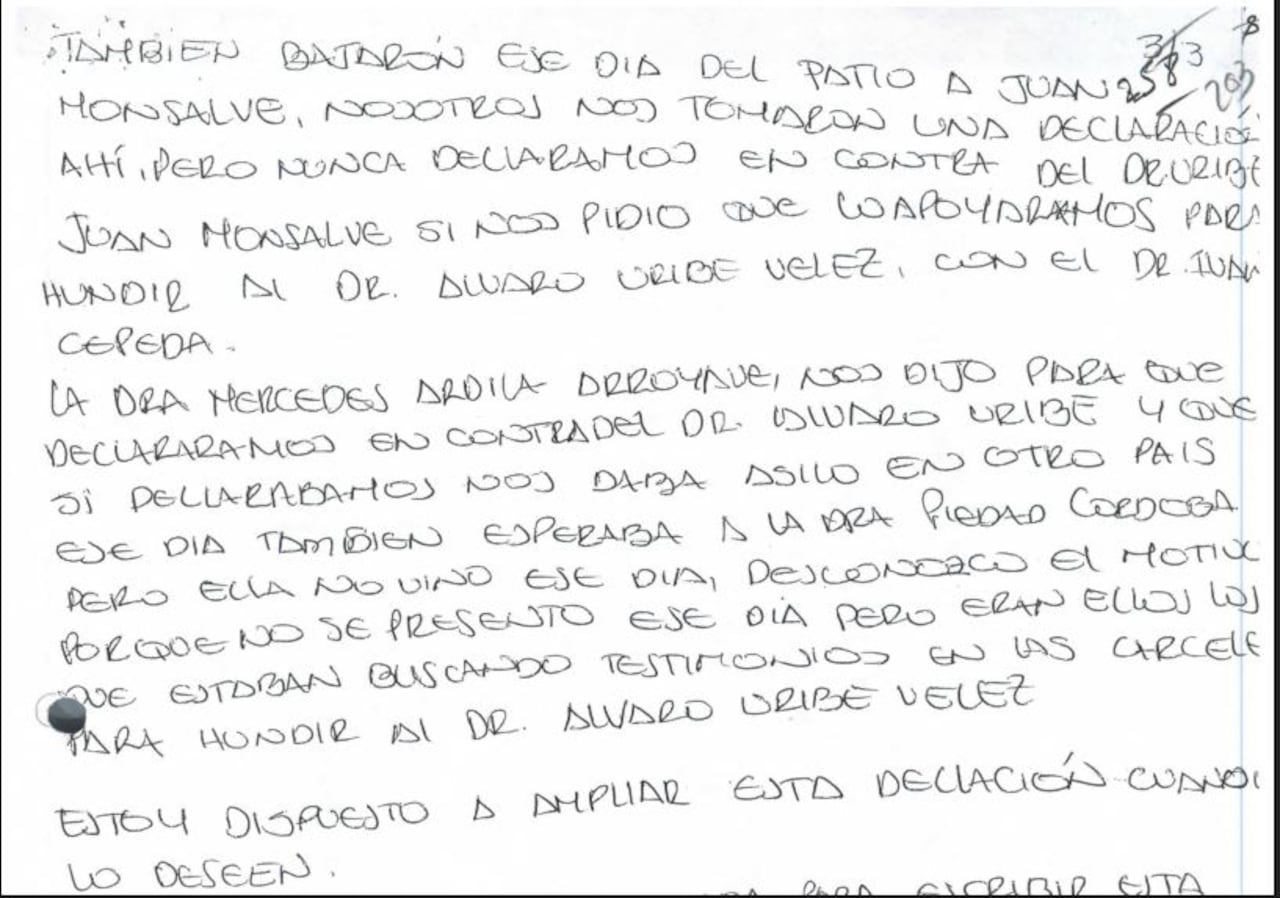 TAMBIEN BAJARÓN ESE DIA DEL PATIO A JUAN
MONSALVE, NOSOTROS NOS TOMARON UNA DECLARACIÓ
AHÍ, PERO NUNCA DECLARAMOS EN CONTRA DEL DR.URIBE
JUAN MONSALVE SI NOS PIDIO QUE LO APOYARAMOS PARA
HUNDIR Al DR. ALVARO URIBE VELEZ, CON El DR. IVAN
CEPEDA.
LA DRA MERCEDES ARDILA ARROYAVE, NOS DIJO PARA QUE
DECLARARAMOS EN CONTRA DEL DR. ALVARO URIBE Y QUE
SI DECLARABAMOS NOS DABA ASILO EN OTRO PAIS
ESE DIA TAMBIEN ESPERABA A LA DRA PIEDAD CORDOBA
PERO ELLA NO VINO ESE DIA, DESCONOZCO El MOTIVO
PORQUE NO SE PRESENTO ESE DÍA PERO ERAN ELLOS LOS
QUE ESTABAN BUSCANDO TESTIMONIOS EN LAS CARCELE
PARA HUNDIR Al DR. ALVARO URIBE VELEZ
ESTOY DISPUESTO A AMPLIAR ESTA DECLACIÓN CUANDO
LO DESEEN.
PARA ESCRIBIR ESTA
3/3
258
203
8